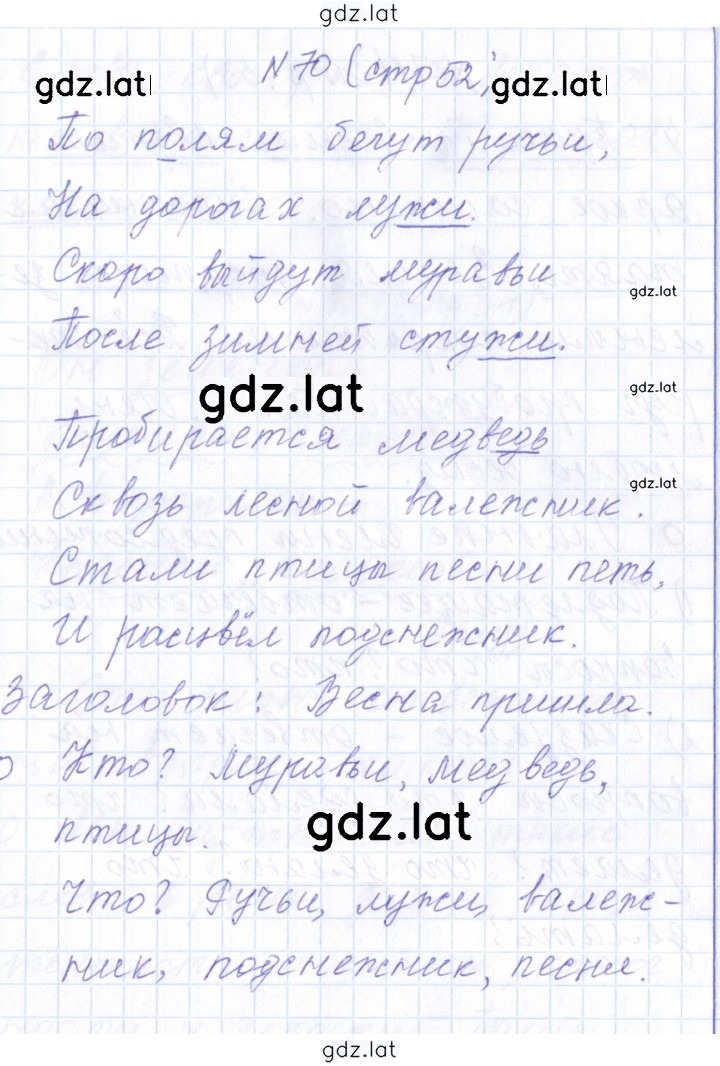 gdz.lat
N 70 (стр 52)
gdz.lat gdz.lat
По полям бегут ручьи,
На дорогах лужи.
Скоро выйдут муравьи
gdz.lat
После зимней стужи.
gdz.lat
gdz.lat
Пробирается медведь
gdz.lat
Сквозь лесной валежник.
Стали птицы песни петь,
И расцвёл подснежник.
Заголовок: Весна пришла.
Кто? Муравьи, медведь,
птицы.
gdz.lat
Что? Ручьи, лужи, валеж-
ник, подснежник, песни.
gdz.lat